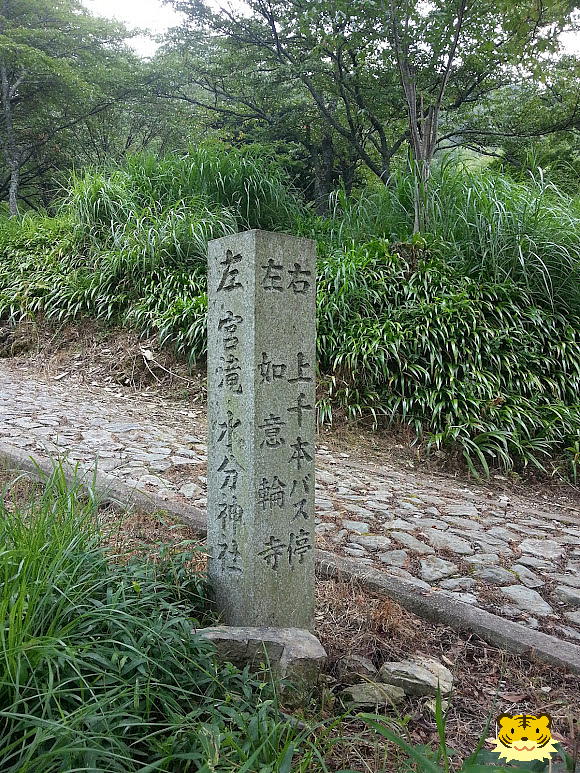 右 上千本バス停
左 如意輪寺
左 宮滝 水分神社